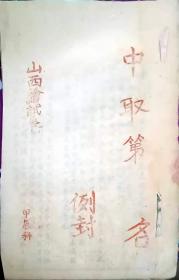 中取第 名
例封
山西論試卷
甲辰科